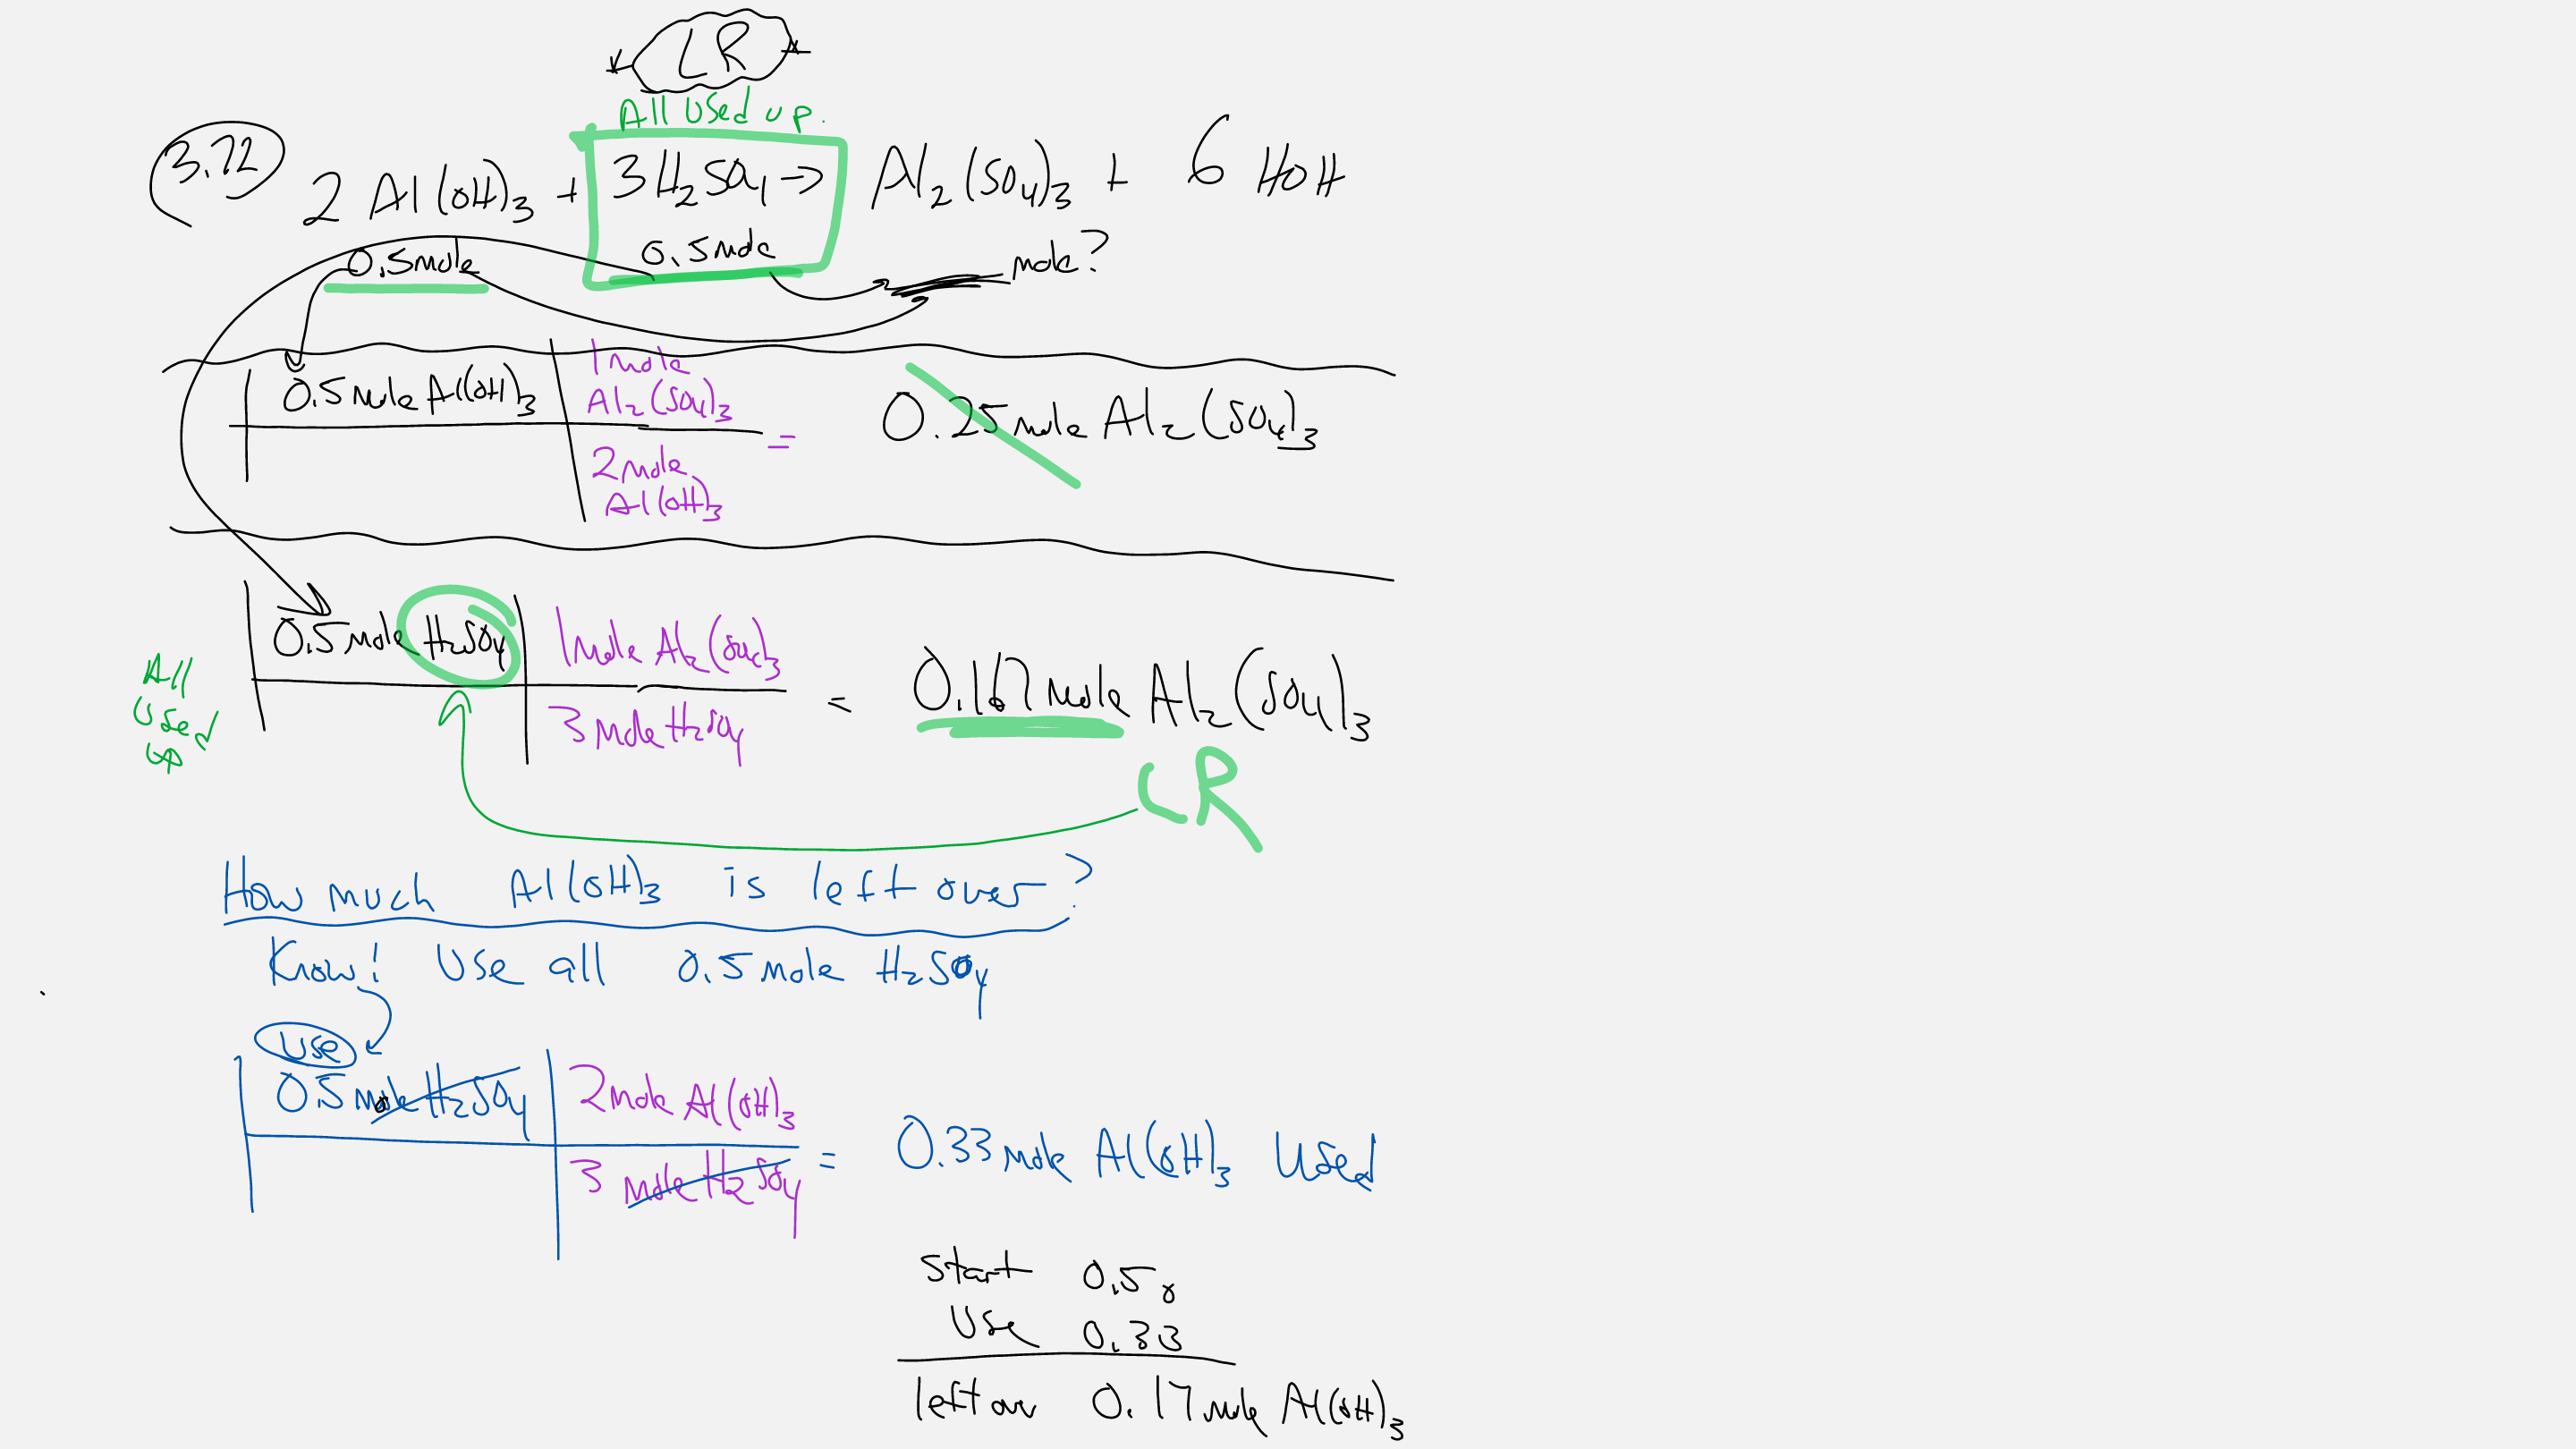 LR
All Used up.
3.72
2 Al(OH)3 + 3 H2SO4 → Al2(SO4)3 + 6 HOH
0.5 mole 0.5 mole mole?
0.5 mole Al(OH)3 1 mole Al2(SO4)3
2 mole Al(OH)3
= 0.25 mole Al2(SO4)3
All Used up
0.5 mole H2SO4 1 mole Al2(SO4)3
3 mole H2SO4
= 0.167 mole Al2(SO4)3
LR
How much Al(OH)3 is left over?
Know! Use all 0.5 mole H2SO4
Use
0.5 mole H2SO4 2 mole Al(OH)3
3 mole H2SO4
= 0.33 mole Al(OH)3 Used
Start 0.50
Use 0.33
left over 0.17 mole Al(OH)3